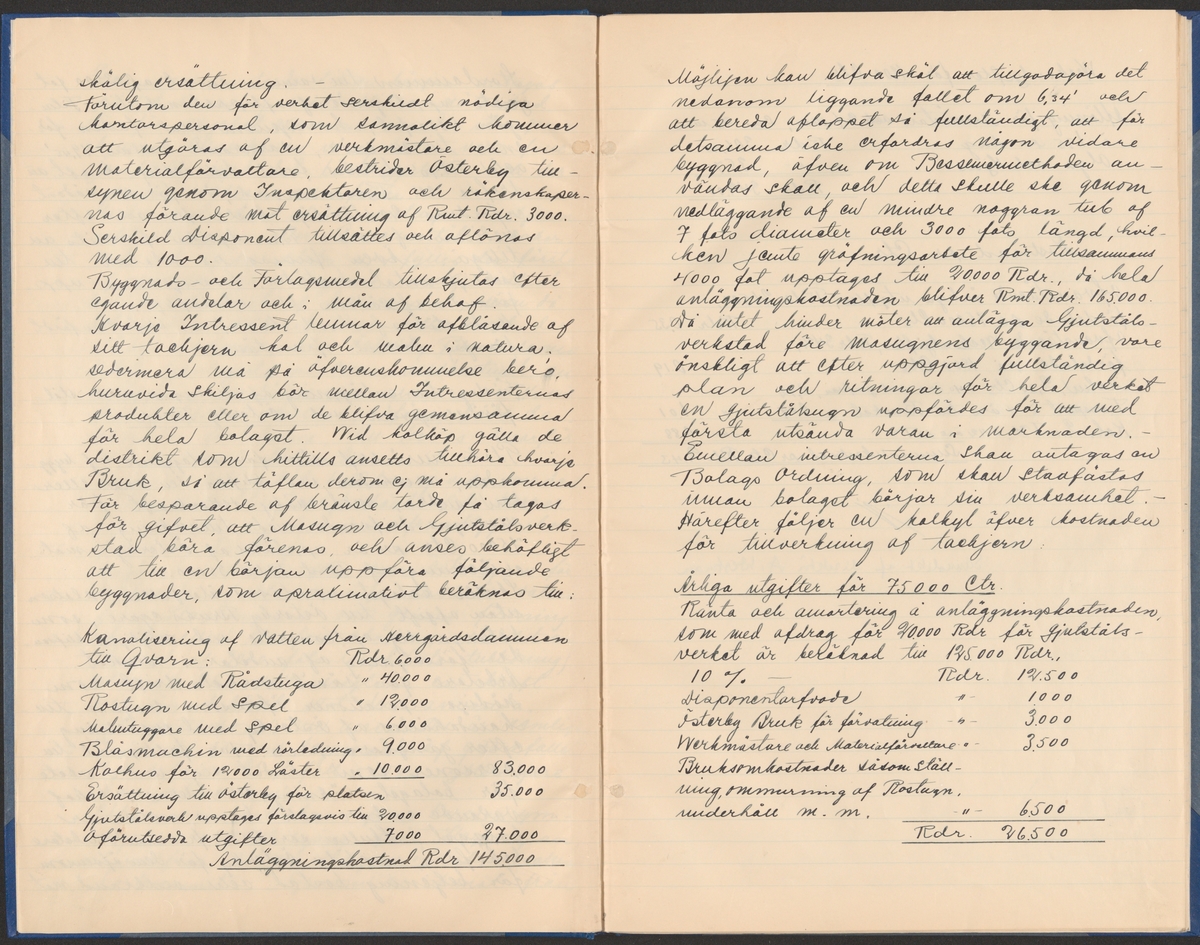 skälig ersättning. –
Förutom den för verket serskildt nödiga
kontorspersonal, som sannolikt kommer
att utgöras af en verkmästare och en
materialförvaltare, bestrider Österby till-
synen genom Inspektoren och räkenskaper-
nas förande mot ersättning af Rmt. Rdr. 3000.
Serskild Disponent tillsättes och aflönas
med 1000.
Byggnads- och Förlagsmedel tillskjutas efter
egande andelar och i mån af behof.
Hvarje Intressent lemnar för afblåsende af
sitt tackjern kol och malm i natura;
sedermera må på öfverenskommelse bero,
huruvida skiljas bör mellan Intressenternas
produkter eller om de blifva gemensamma
för hela bolaget. Wid kolköp gälla de
distrikt som hittills ansetts tillhöra hvarje
Bruk, så att täflan derom ej må uppkomma.
För besparande af bränsle torde få tagas
för gifvet, att Masugn och Gjutstålsverk-
stad böra förenas, och anses behöfligt
att till en början uppföra följande
byggnader, som apralimativt beräknas till:
Kanalisering af vatten från Herrgårdsdammen
till Qvarn: Rdr 6000
Masugn med Rådstuga " 40.000
Rostugn med spel " 12.000
Malmtuggare med spel " 6.000
Blåsmachin med rörledning " 9.000
Kolhus för 12000 Läster " 10.000 83.000
Ersättning till Österby för platsen 35.000
Gjutstålsverk upptages förslagsvis till 20.000
Oförutsedda utgifter 7000 27.000
Anläggningskostnad Rdr 145000
Möjligen kan blifva skäl att tillgodagöra det
nedanom liggande fallet om 6,34' och
att bereda afloppet så fullständigt, att för
detsamma icke erfordras någon vidare
byggnad, äfven om Bessemermethoden an-
vändas skall, och detta skulle ske genom
nedläggande af en mindre noggran tub af
7 fots diameter och 3000 fots längd, hvil-
ken jemte gräfningsarbete för tillsammans
4000 fot upptages till 20000 Rdr., då hela
anläggningskostnaden blifver Rmt. Rdr. 165.000.
Då intet hinder möter att anlägga Gjutståls-
verkstad före masugnens byggande, vore
önskligt att efter uppgjord fullständig
plan och ritningar för hela verket
en gjutstålsugn uppfördes för att med
första utsända varan i marknaden. –
Emellan intressenterna skall antagas en
Bolags Ordning, som skall stadfästas
innan bolaget börjar sin verksamhet. –
Härefter följer en kalkyl öfver kostnaden
för tillverkning af tackjern:
Årliga utgifter för 75000 Ctr.
Ränta och amortering å anläggningskostnaden,
som med afdrag för 20,000 Rdr för gjutståls-
verket är beräknad till 125000 Rdr.,
10 % – Rdr. 12.500
Disponentarfvode -"- 1000
Österby Bruk för förvaltning -"- 3.000
Werkmästare och Materialförvaltare -"- 3,500
Bruksomkostnader såsom Ställ-
ning, ommurning af Rostugn,
underhåll m. m. -"- 6.500
Rdr. 26.500